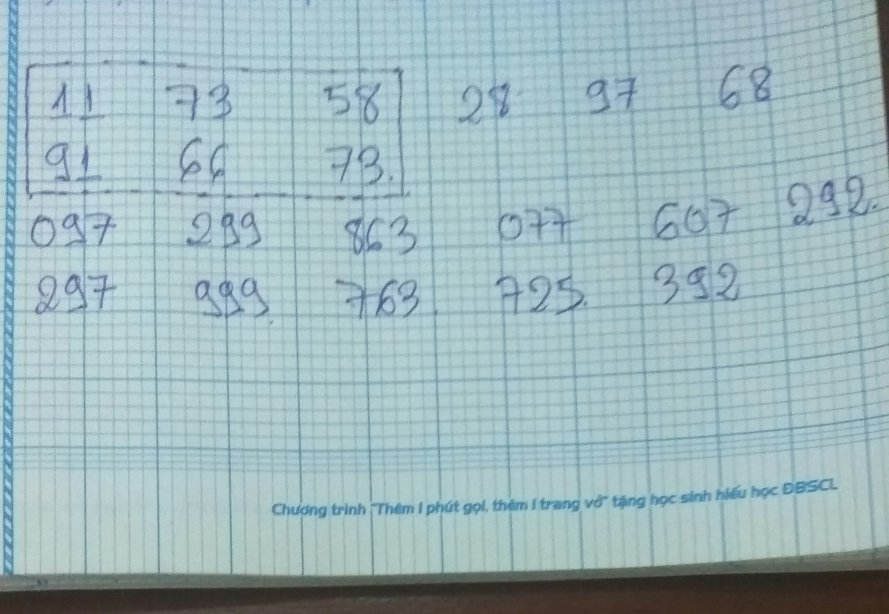 11 73 58 28 97 68
91 66 73.
097 299 863 077 607 292.
297 999 763 725. 392
Chương trình "Thêm 1 phút gọi, thêm 1 trang vở" tặng học sinh hiếu học ĐBSCL